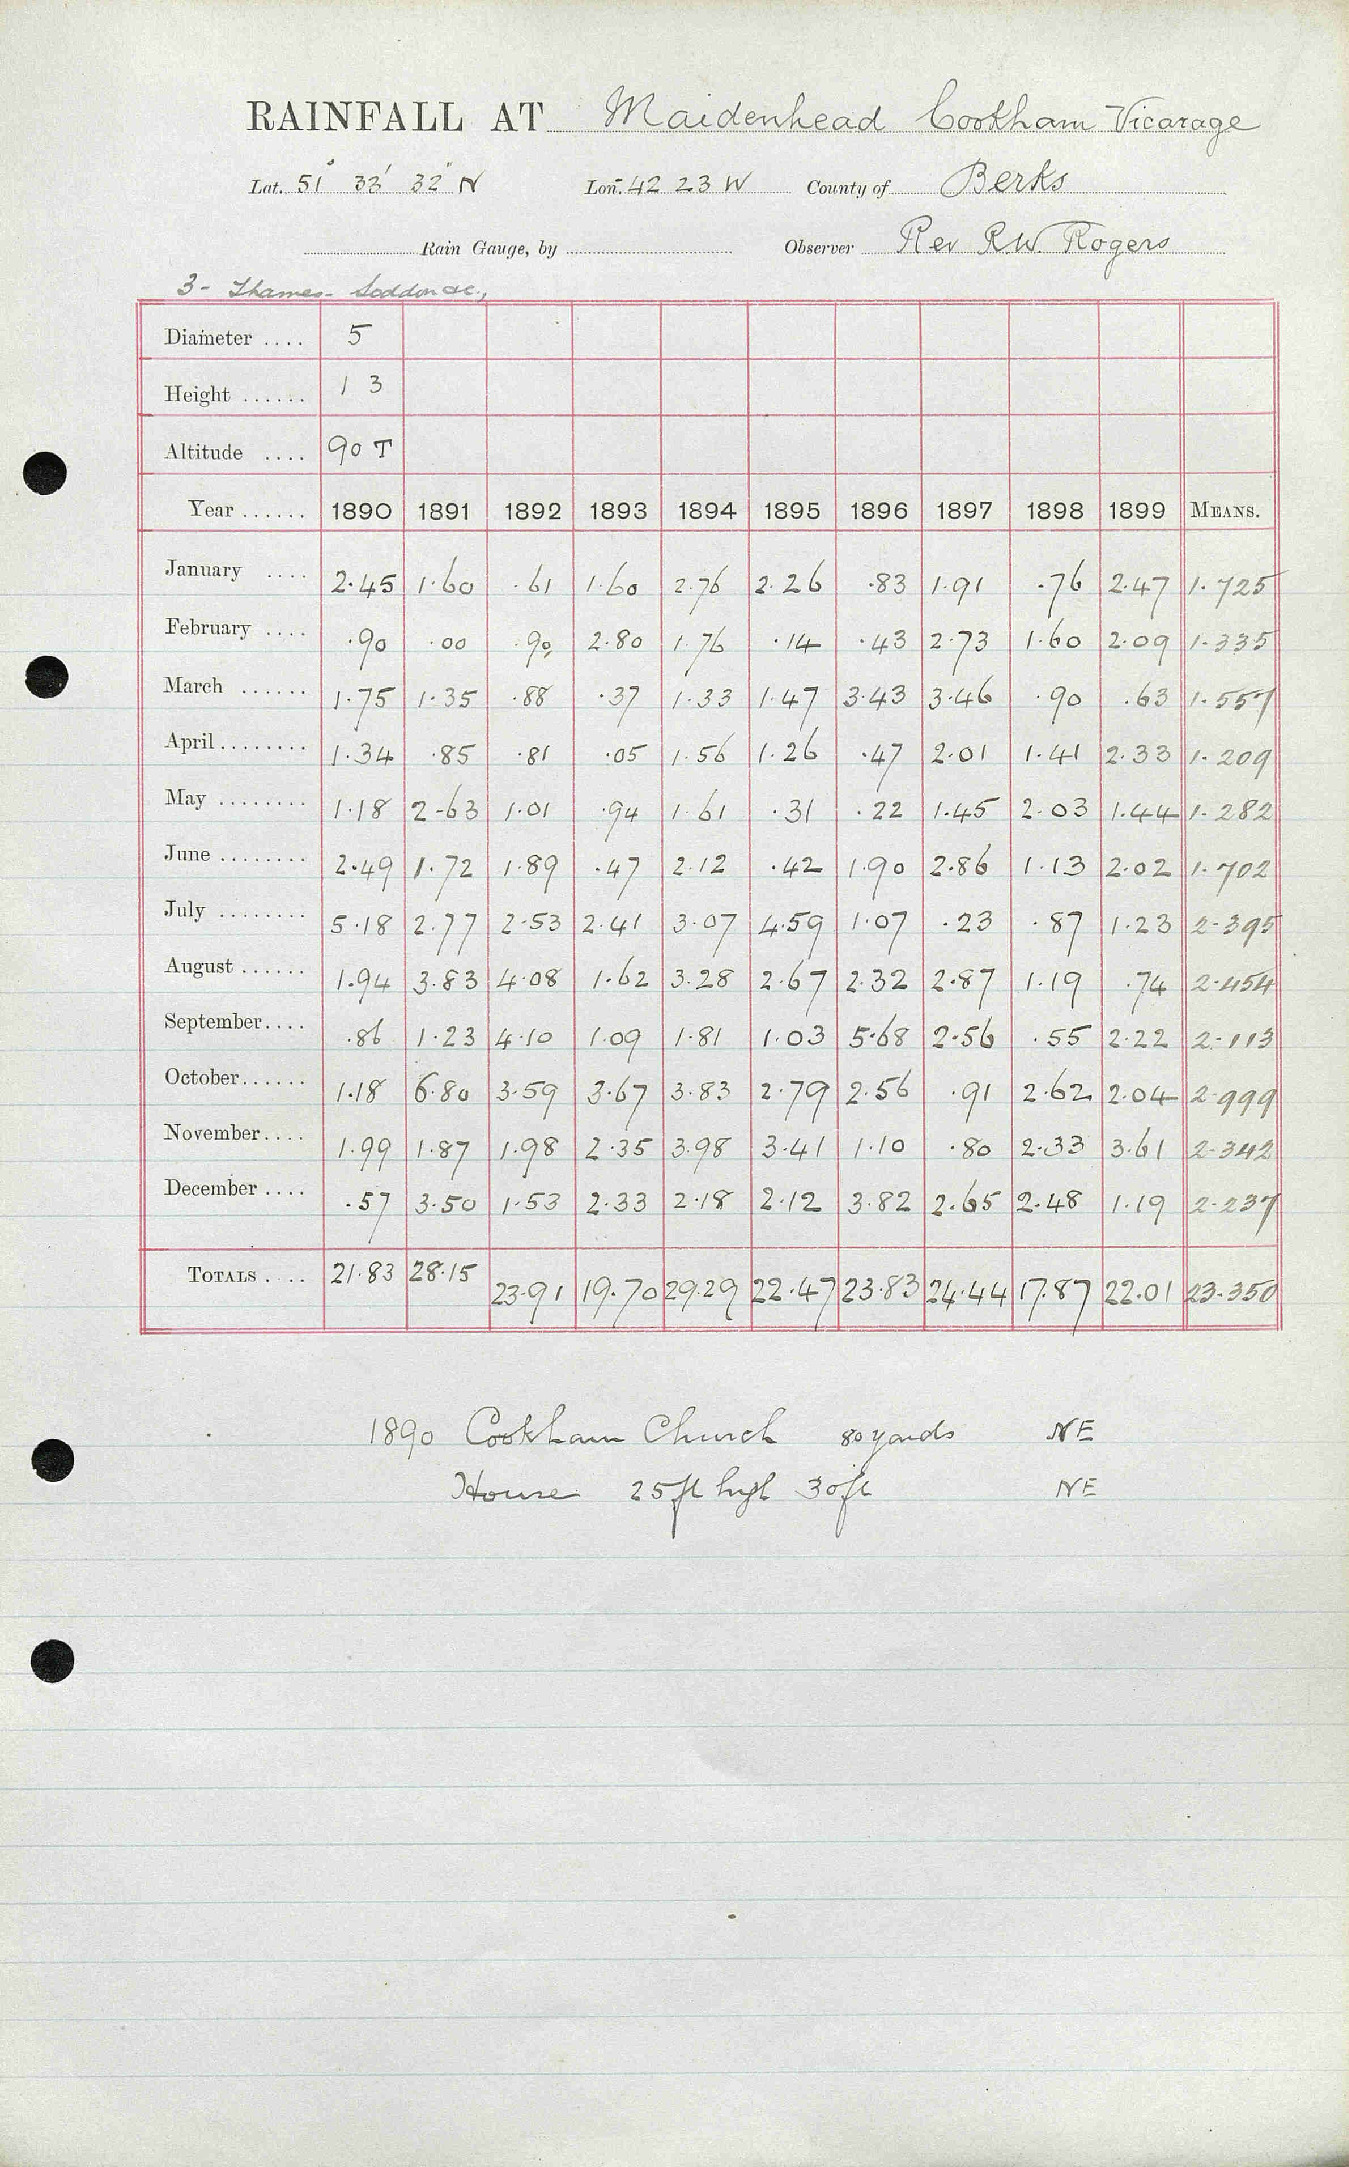 RAINFALL AT Maidenhead Cookham Vicarage
Lat. 51° 33' 32" N Lon. 42 23 W County of Berks
Rain Gauge, by Observer Rev RW. Rogers
3 - Thames
Diameter .... 5
Height ...... 1 3
Altitude .... 90 T
Year ...... 1890 1891 1892 1893 1894 1895 1896 1897 1898 1899 MEANS.
January .... 2.45 1.60 .61 1.60 2.76 2.26 .83 1.91 .76 2.47 1.725
February .... .90 .00 .90 2.80 1.76 .14 .43 2.73 1.60 2.09 1.335
March ...... 1.75 1.35 .88 .37 1.33 1.47 3.43 3.46 .90 .63 1.557
April........ 1.34 .85 .81 .05 1.56 1.26 .47 2.01 1.41 2.33 1.209
May ........ 1.18 2-63 1.01 .94 1.61 .31 .22 1.45 2.03 1.44 1.282
June ........ 2.49 1.72 1.89 .47 2.12 .42 1.90 2.86 1.13 2.02 1.702
July ........ 5.18 2.77 2.53 2.41 3.07 4.59 1.07 .23 .87 1.23 2.395
August ...... 1.94 3.83 4.08 1.62 3.28 2.67 2.32 2.87 1.19 .74 2.454
September.... .86 1.23 4.10 1.09 1.81 1.03 5.68 2.56 .55 2.22 2.113
October...... 1.18 6.80 3.59 3.67 3.83 2.79 2.56 .91 2.62 2.04 2.999
November.... 1.99 1.87 1.98 2.35 3.98 3.41 1.10 .80 2.33 3.61 2.342
December .... .57 3.50 1.53 2.33 2.18 2.12 3.82 2.65 2.48 1.19 2.237
TOTALS .... 21.83 28.15 23.91 19.70 29.29 22.47 23.83 24.44 17.87 22.01 23.350
1890 Cookham Church 80 yards NE
House 25 ft high 30 ft NE